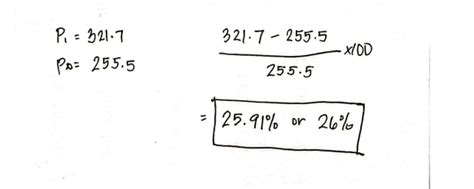 P₁ = 321.7
P₀ = 255.5
321.7 - 255.5
x100
255.5
= 25.91% or 26%